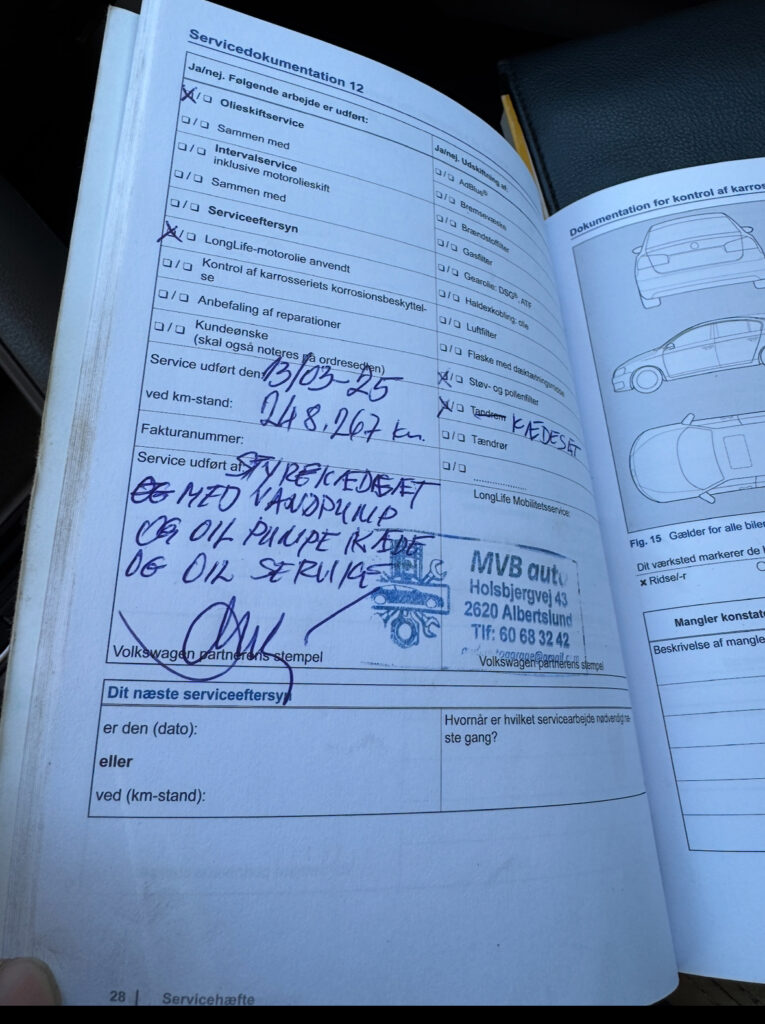 Servicedokumentation 12
Ja/nej. Følgende arbejde er udført:
X/❑ Olieskiftservice
❑/❑ Sammen med
❑/❑ Intervalservice
inklusive motorolieskift
❑/❑ Sammen med
❑/❑ Serviceeftersyn
X/❑ LongLife-motorolie anvendt
❑/❑ Kontrol af karrosseriets korrosionsbeskyttel-
se
❑/❑ Anbefaling af reparationer
❑/❑ Kundeønske
(skal også noteres på ordresedlen)
Service udført den: 13/03-25
ved km-stand: 248.267 km.
Fakturanummer:
Service udført af: STYREKÆDESÆT
OG MED VANDPUMP
OG OIL PUMPE KÆDE
OG OIL SERVICE
Volkswagen partnerens stempel
Ja/nej. Udskiftning af:
❑/❑ AdBlue®
❑/❑ Bremsevæske
❑/❑ Brændstoffilter
❑/❑ Gasfilter
❑/❑ Gearolie: DSG®, ATF
❑/❑ Haldexkobling: olie
❑/❑ Luftfilter
❑/❑ Flaske med dæktætningsmiddel
X/❑ Støv- og pollenfilter
X/❑ Tandrem KÆDESÆT
❑/❑ Tændrør
❑/❑
LongLife Mobilitetsservice:
MVB auto
Holsbjergvej 43
2620 Albertslund
Tlf: 60 68 32 42
Volkswagen partnerens stempel
Dit næste serviceeftersyn
er den (dato):
eller
ved (km-stand):
Hvornår er hvilket servicearbejde nødvendig næ-
ste gang?
28 | Servicehæfte
Dokumentation for kontrol af karros
Fig. 15 Gælder for alle biler
Dit værksted markerer de
× Ridse/-r
Mangler konstate
Beskrivelse af mangle